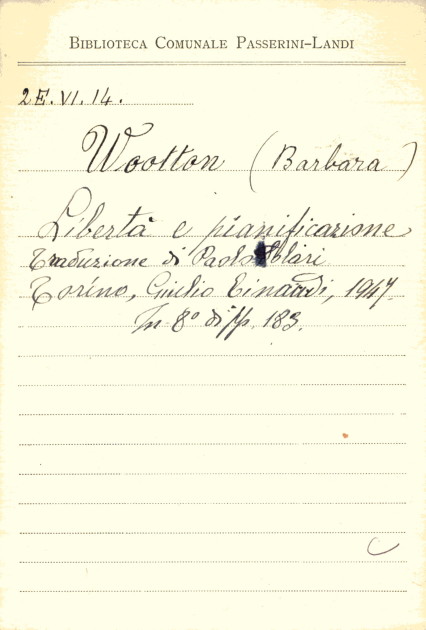 BIBLIOTECA COMUNALE PASSERINI-LANDI
2E.VI.14.
Wootton (Barbara)
Libertà e pianificazione
Traduzione di Paolo
Torino, Giulio Einaudi, 1947.
In 8º di pp. 183.
C